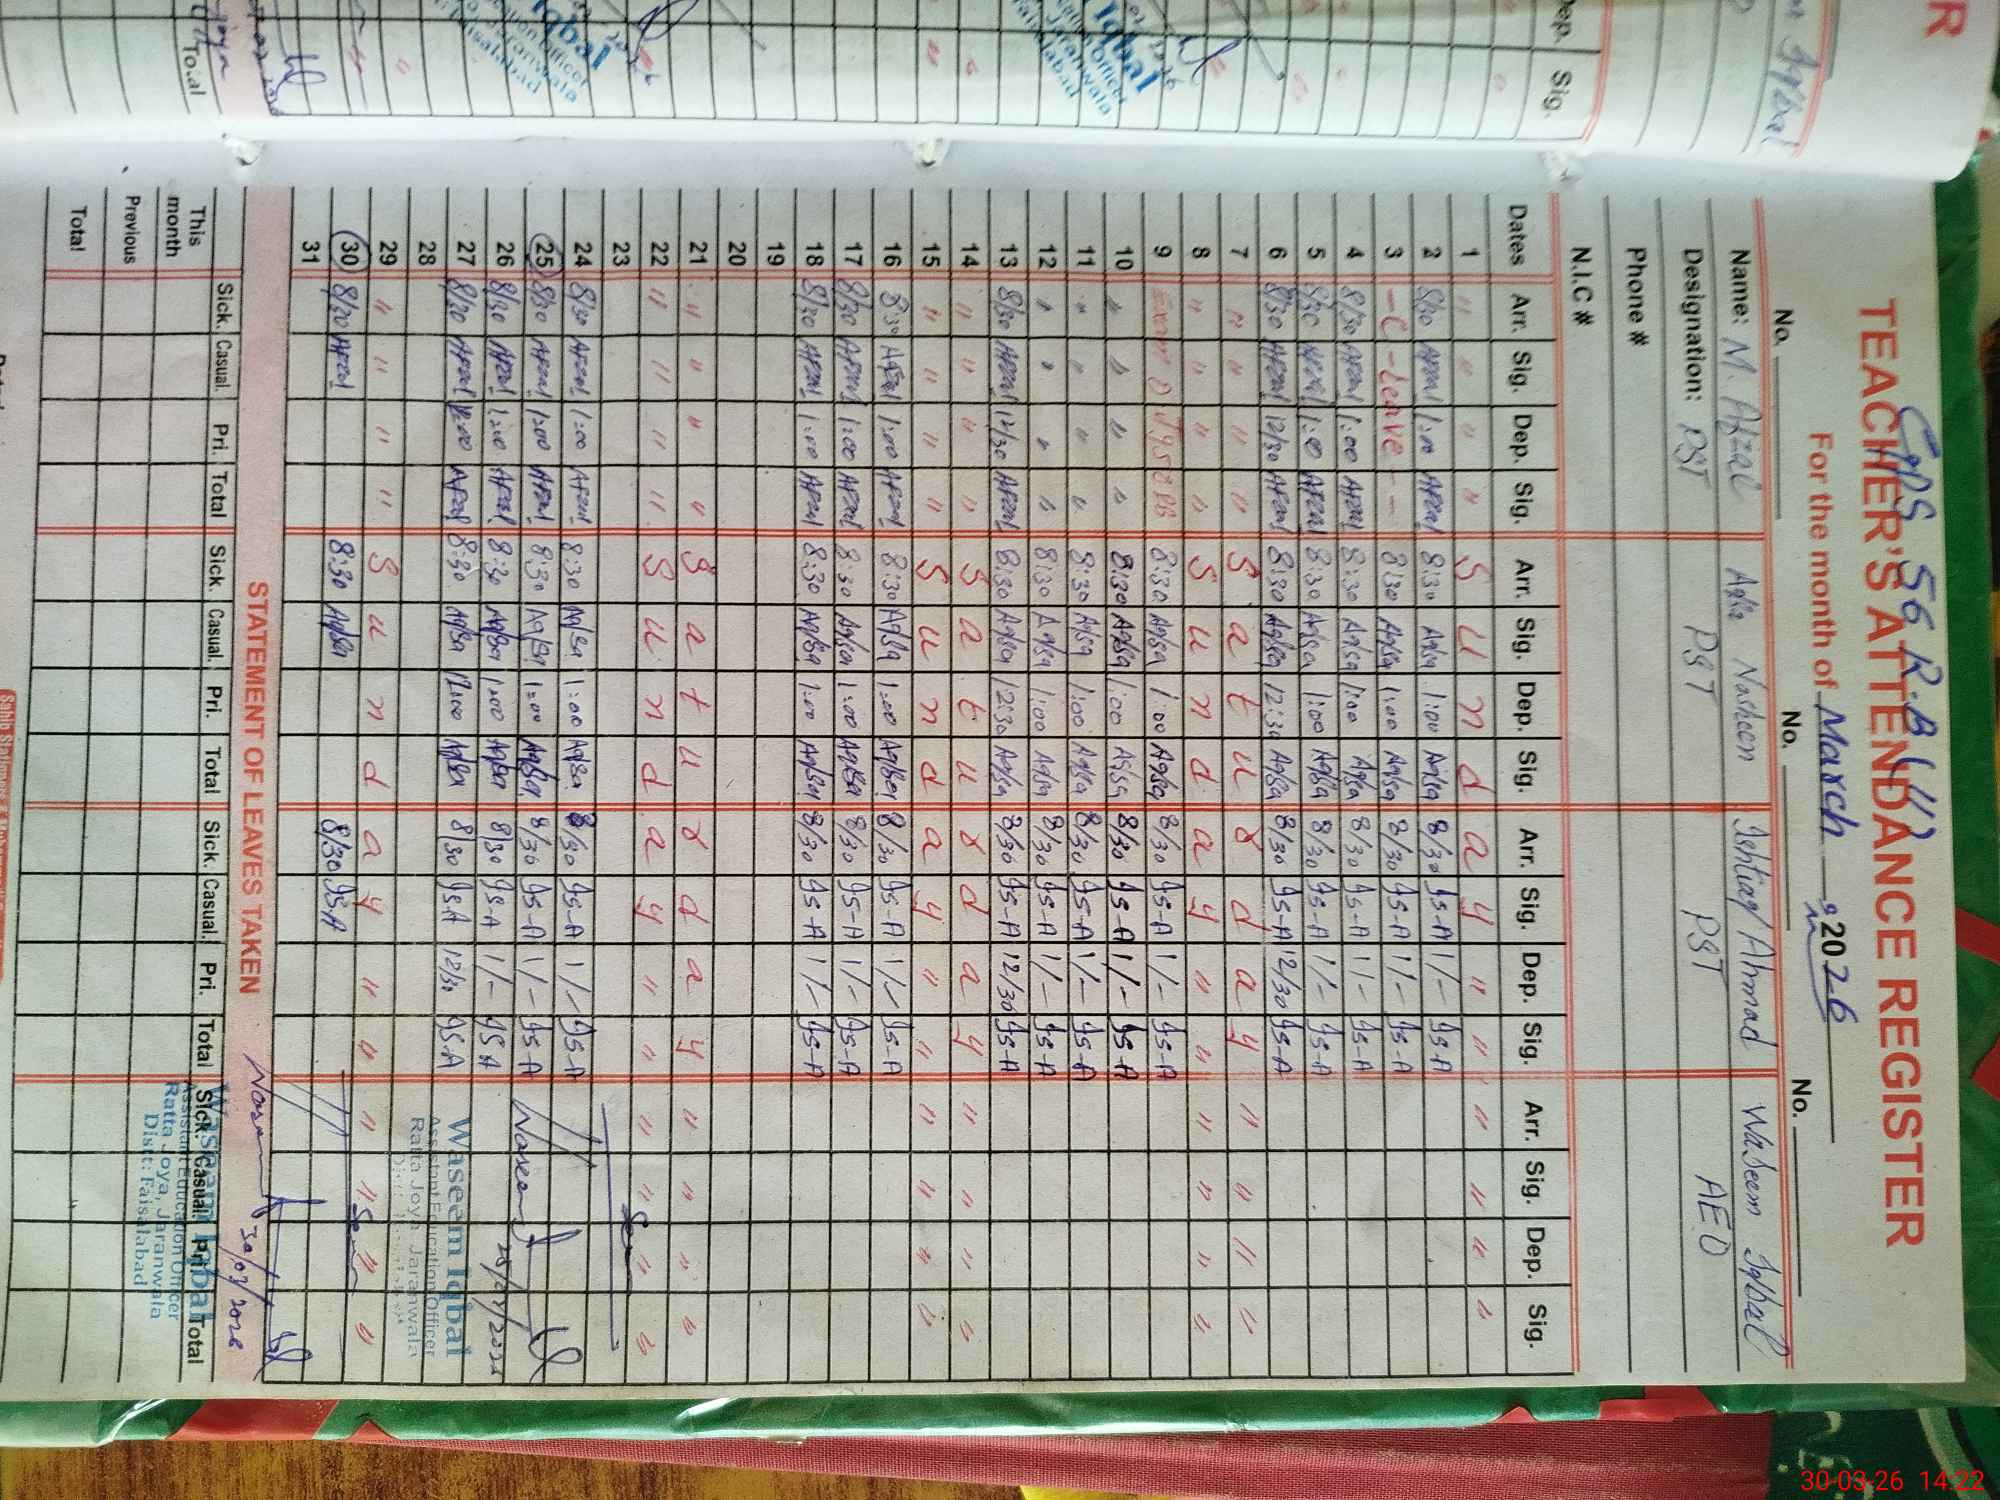 GPS 56 R.B (U)
TEACHER'S ATTENDANCE REGISTER
For the month of March 2026
No. No. No.
Name: M. Afzal Aqsa Nosheen Ishtiaq Ahmad Waseem Iqbal
Designation: PST PST PST AEO
Phone #
N.I.C #
Dates Arr. Sig. Dep. Sig. Arr. Sig. Dep. Sig. Arr. Sig. Dep. Sig. Arr. Sig. Dep. Sig.
1 " " " " S u n d a y " " " " " "
2 8/30 Afzal 1:00 Afzal 8:30 Aqsa 1:00 Aqsa 8/30 IS-A 1/- IS-A
3 -C-Leave-- 8:30 Aqsa 1:00 Aqsa 8/30 IS-A 1/- IS-A
4 8/30 Afzal 1:00 Afzal 8:30 Aqsa 1:00 Aqsa 8/30 IS-A 1/- IS-A
5 8/30 Afzal 1:00 Afzal 8:30 Aqsa 1:00 Aqsa 8/30 IS-A 1/- IS-A
6 8/30 Afzal 12/30 Afzal 8:30 Aqsa 12:30 Aqsa 8/30 IS-A 12/30 IS-A
7 " " " " S a t u r d a y " " " "
8 " " " " S u n d a y " " " " " "
9 8:30 Aqsa 1:00 Aqsa 8/30 IS-A 1/- IS-A
10 " " " " 8:30 Aqsa 1:00 Aqsa 8/30 IS-A 1/- IS-A
11 " " " " 8:30 Aqsa 1:00 Aqsa 8/30 IS-A 1/- IS-A
12 " " " " 8:30 Aqsa 1:00 Aqsa 8/30 IS-A 1/- IS-A
13 8/30 Afzal 12/30 Afzal 8:30 Aqsa 12:30 Aqsa 8/30 IS-A 12/30 IS-A
14 " " " " S a t u r d a y " " " "
15 " " " " S u n d a y " " " " " "
16 8:30 Afzal 1:00 Afzal 8:30 Aqsa 1:00 Aqsa 8/30 IS-A 1/- IS-A
17 8/30 Afzal 1:00 Afzal 8:30 Aqsa 1:00 Aqsa 8/30 IS-A 1/- IS-A
18 8/30 Afzal 1:00 Afzal 8:30 Aqsa 1:00 Aqsa 8/30 IS-A 1/- IS-A
19
20
21 " " " " S a t u r d a y " " " "
22 " " " " S u n d a y " " " " " "
23
24 8/30 Afzal 1:00 Afzal 8:30 Aqsa 1:00 Aqsa 8/30 IS-A 1/- IS-A
25 8/30 Afzal 1:00 Afzal 8:30 Aqsa 1:00 Aqsa 8/30 IS-A 1/- IS-A Waseem
26 8/30 Afzal 1:00 Afzal 8:30 Aqsa 1:00 Aqsa 8/30 IS-A 1/- IS-A
27 8/30 Afzal 12:00 Afzal 8:30 Aqsa 12:00 Aqsa 8/30 IS-A 12/30 IS-A
Waseem Iqbal
Assistant Education Officer
Ratta Joya, Jaranwala
28
29 " " " " S u n d a y " " " " " "
30 8/30 Afzal 8:30 Aqsa 8/30 IS-A
31
STATEMENT OF LEAVES TAKEN
Waseem 30/03/2026
Sick. Casual. Pri. Total Sick. Casual. Pri. Total Sick. Casual. Pri. Total Sick. Casual. Pri. Total
This month
Previous
Total
Waseem Iqbal
Assistant Education Officer
Ratta Joya, Jaranwala
Distt: Faisalabad
R
Iqbal
Dep. Sig.
Iqbal
Officer
Jaranwala
Faisalabad
Iqbal
Education Officer
Jaranwala
Faisalabad
Total
30-03-26 14:22